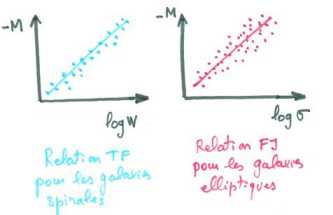 -M
log W
-M
log σ
Relation TF
pour les galaxies
spirales
Relation FJ
pour les galaxies
elliptiques